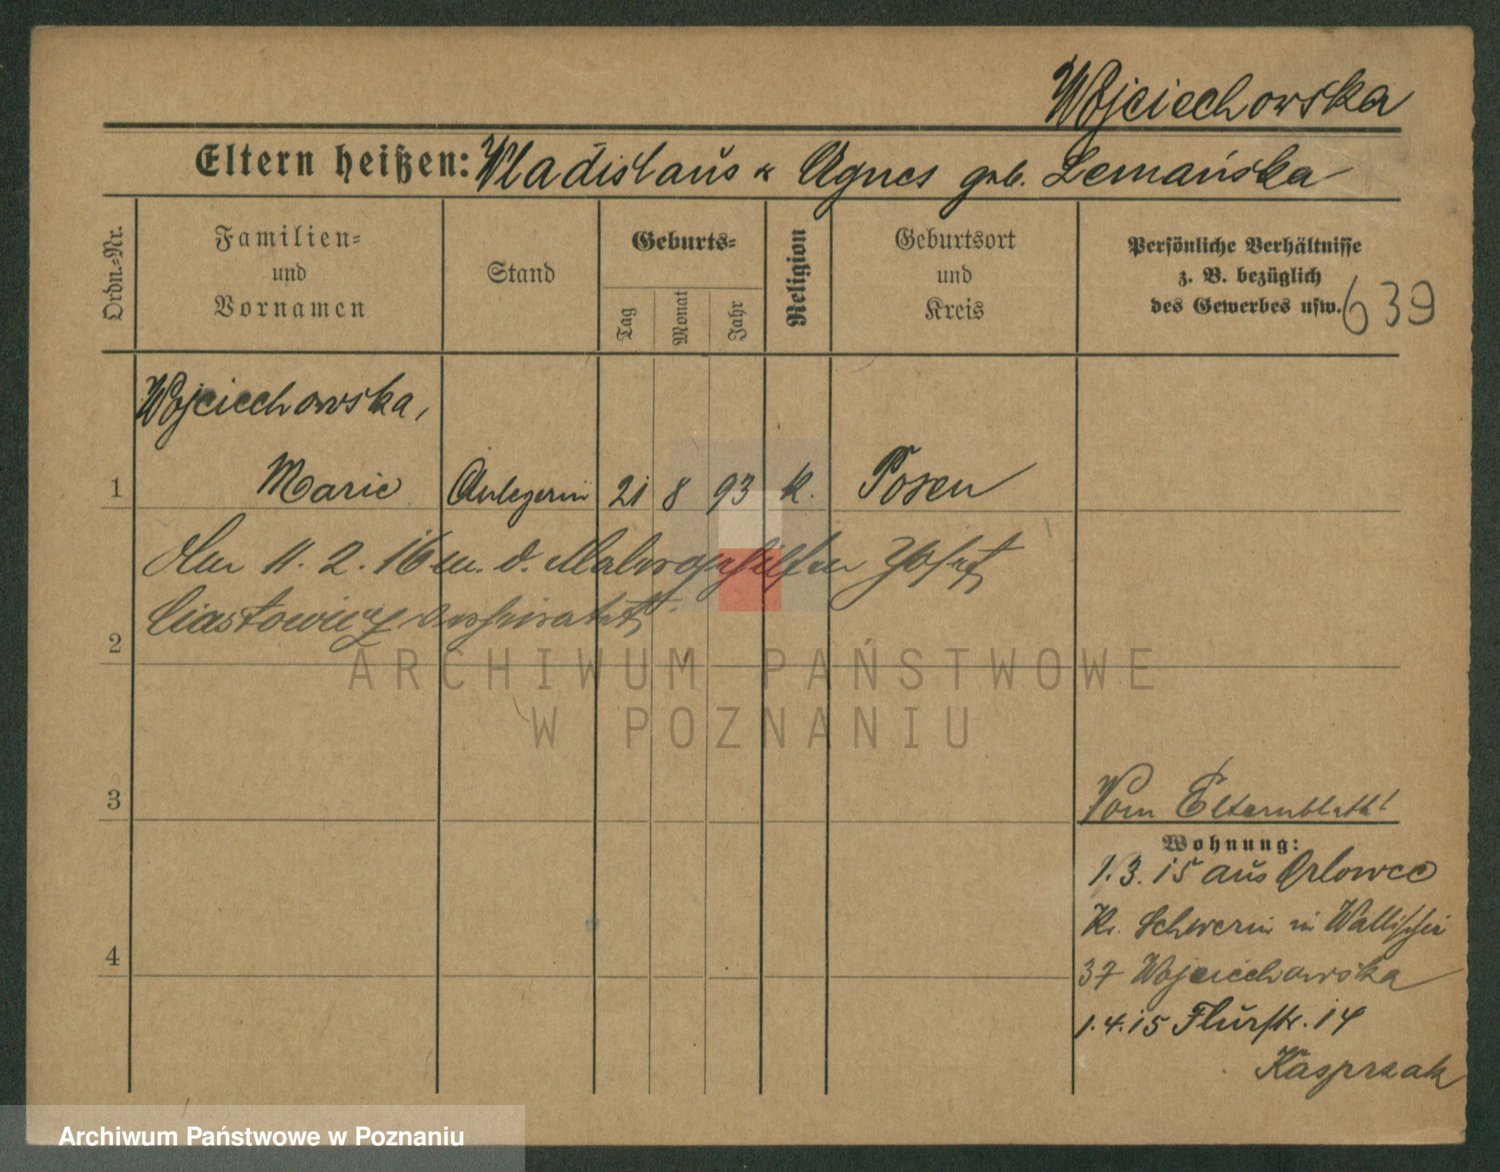 Wojciechowska
Eltern heißen: Wladislaus u Agnes geb. Lemańska
Ordn.-Nr.
Familien-
und
Vornamen
Stand
Geburts-
Tag
Monat
Jahr
Religion
Geburtsort
und
Kreis
Persönliche Verhältnisse
z. B. bezüglich
des Gewerbes usw.
639
Wojciechowska,
1 Marie Anlegerin 21 8 93 k. Posen
Am 11. 2. 16 m. d. Malergehilfen Josef
2 Ciastowicz verheiratet
ARCHIWUM PAŃSTWOWE
W POZNANIU
3
Vom Elternblatt!
Wohnung:
1. 3. 15 aus Orlowce
Kr. Schwerin in Wallischei
4
37 Wojciechowska
1. 4. 15 Flurstr. 14
Kasprzak
Archiwum Państwowe w Poznaniu